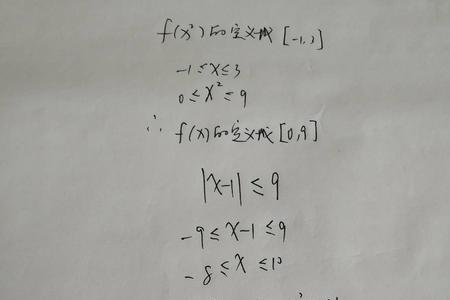 f(x²)的定义域[-1,3]
-1≤x≤3
0≤x²≤9
∴ f(x)的定义域[0,9]
|x-1|≤9
-9≤x-1≤9
-8≤x≤10